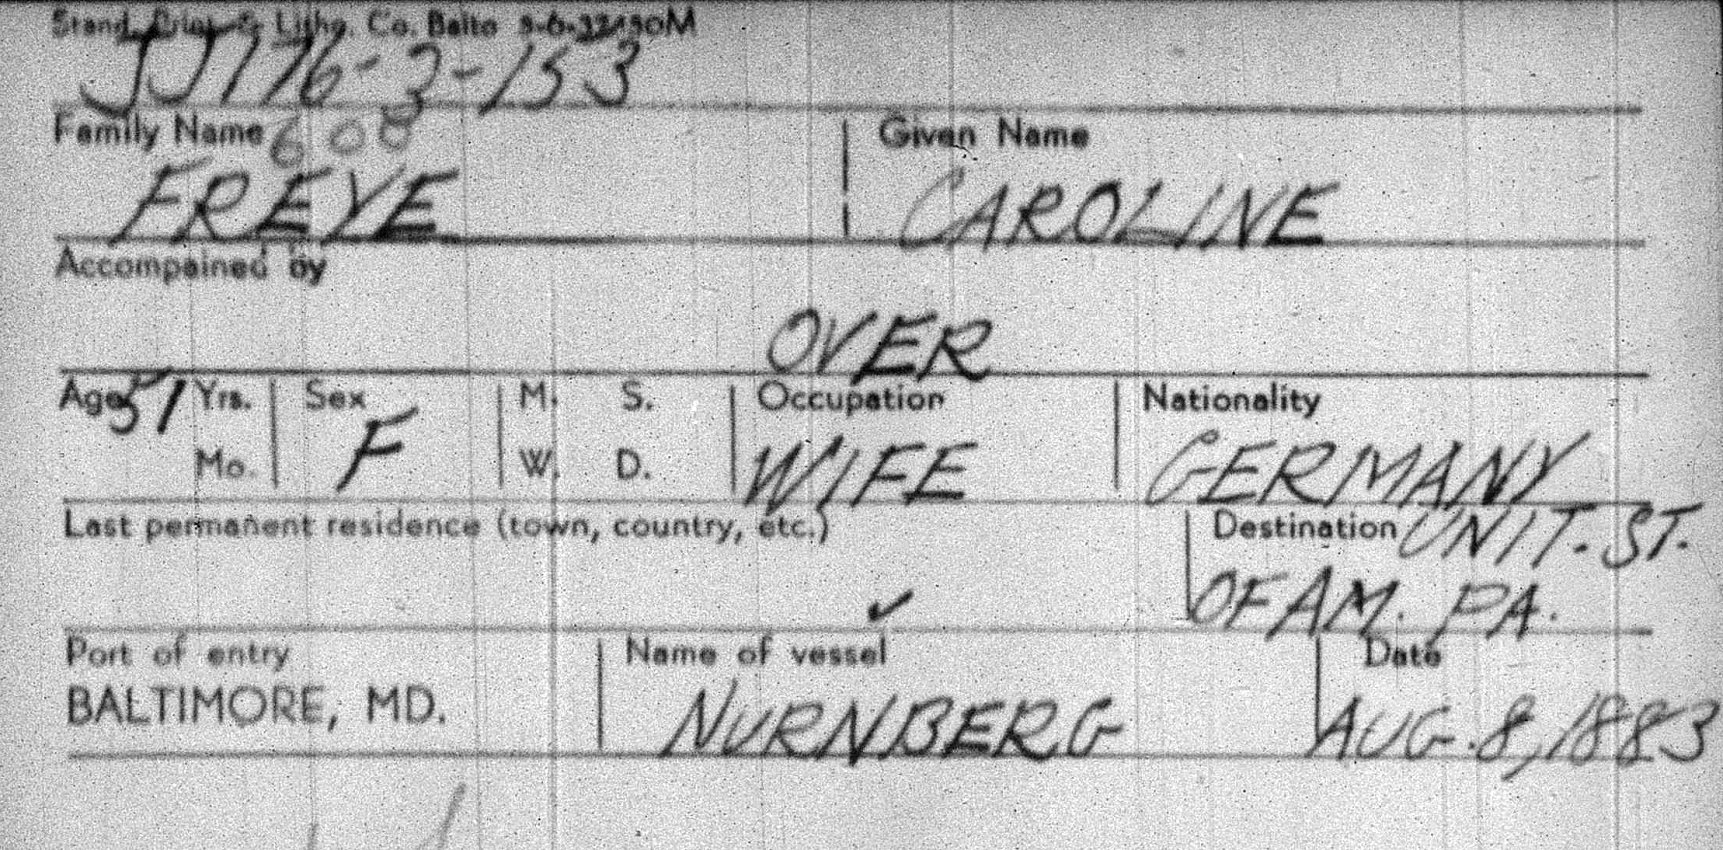 Stand. Print. & Litho. Co. Balto 9-6-32150M
JJ176-3-153
Family Name 600 Given Name
FREYE CAROLINE
Accompained by
OVER
Age 51 Yrs. Sex M. S. Occupation Nationality
Mo. F W. D. WIFE GERMANY
Last permanent residence (town, country, etc.) Destination UNIT. ST.
OF AM. PA.
Port of entry Name of vessel Date
BALTIMORE, MD. NURNBERG AUG. 8, 1883